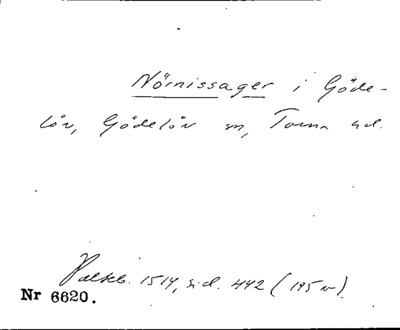 Nörnissager i Göde-
löv, Gödelöv sn, Torna hd.
Palteb. 1514, sid. 442 (195 v).
Nr 6620.